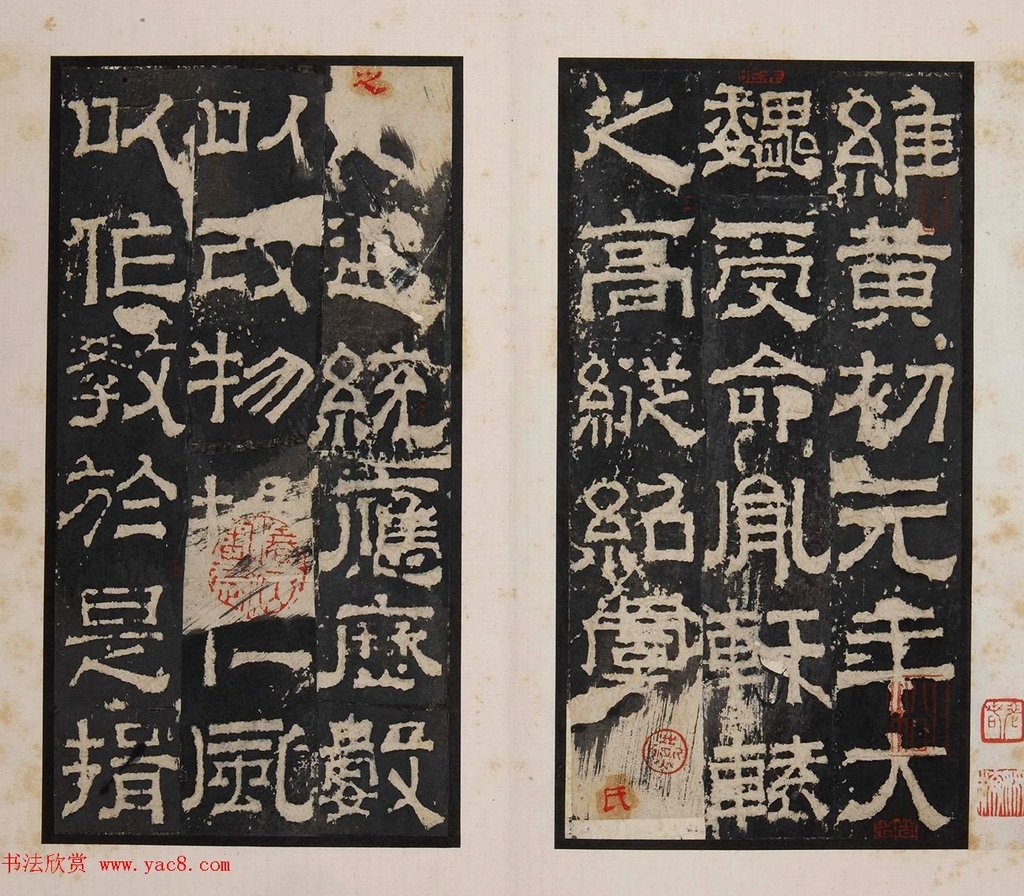 維黃初元年大
魏受命胤軒轅
之高縱紹虞氏
之遐統應歷數
以改物揚仁風
以作教於是揖
书法欣赏 www.yac8.com